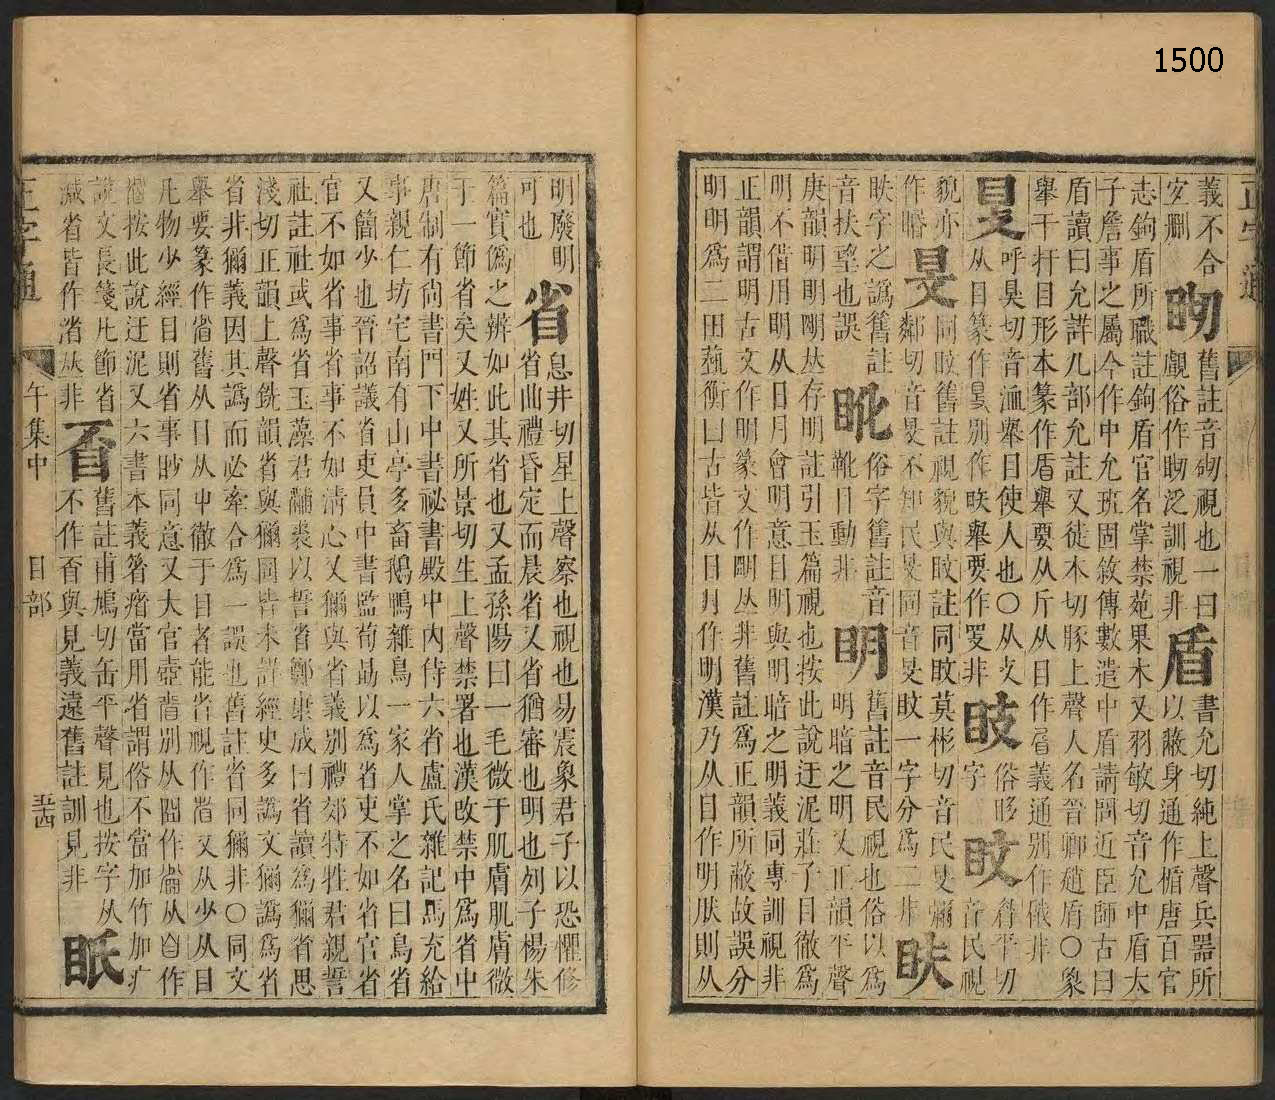 1500
正字通
義不合
安刪
䀛
舊註音砌視也一曰
覷俗作䀛泛訓視非
盾
書允切純上聲兵器所
以蔽身通作楯唐百官
志鉤盾所職註鉤盾官名掌禁苑果木又羽敏切音允中盾大
子詹事之屬今作中允班固敘傳數遣中盾請問近臣師古曰
盾讀曰允詳儿部允註又徒本切豚上聲人名晉卿趙盾○象
舉干扞目形本篆作盾舉要从斤从目作㫁義通別作瞂非
旻
呼臭切音洫舉目使人也○从攴
从目篆作旻別作䀏舉要作䍘非
䀣
俗眵
字
䀛
眉平切
音民視
貌亦同䀛舊註視貌與䀛註同䀛莫彬切音民旻
作睧
旻
鄰切音旻不知民旻同音旻䀛一字分爲二非
眣
眣字之譌舊註
音扶望也誤
䀨
俗字舊註音
靴目動非
明
舊註音民視也俗以爲
明暗之明又正韻平聲
庚韻明朙眀𥇓𠀤存明註引玉篇視也按此說迂泥莊子目徹爲
明不借用明从日月會明意目明與明暗之明義同專訓視非
正韻謂明古文作明篆文作朙𠀤非舊註爲正韻所蔽故誤分
明明爲二田藝衡曰古皆从日月作明漢乃从目作明肰則从
明廢明
可也
省
息井切星上聲察也視也易震象君子以恐懼修
省曲禮昏定而晨省又省猶審也明也列子楊朱
篇實僞之辨如此其省也又孟孫陽曰一毛微于肌膚肌膚微
于一節省矣又姓又所景切生上聲禁署也漢改禁中爲省中
唐制有尚書門下中書祕書殿中內侍六省盧氏雜記馬充給
事親仁坊宅南有山亭多畜鵝鴨雜鳥一家人掌之名曰鳥省
又簡少也晉詔議省吏員中書監荀勗以爲省吏不如省官省
官不如省事省事不如清心又獮與省義別禮郊特牲君親誓
社註社武爲省玉藻君黼裘以誓省鄭康成曰省讀爲獮省思
淺切正韻上聲銑韻省與獮同皆未詳經史多譌文獮譌爲省
省非獮義因其譌而必牽合爲一誤也舊註省同獮非○同文
舉要篆作㿙舊从目从屮徹于目者能省視作㿙又从少从目
凡物少經目則省事眇同意又大官壺㿙別从囧作𠕋从自作
㿙按此說迂泥又六書本義箵㾪當用省謂俗不當加竹加疒
說文長箋凡節省
減省皆作渻𠀤非
䀝
舊註甫鳩切缶平聲見也按字从
不作䀝與見義遠舊註訓見非
眡
正字通
午集中
目部
五十四